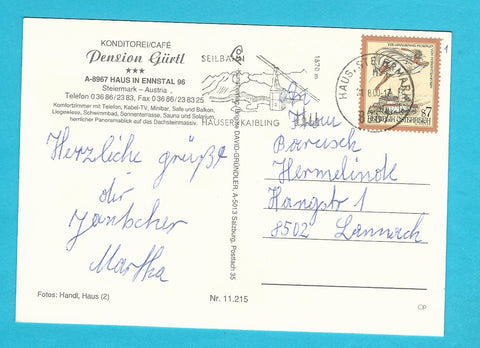 KONDITOREI/CAFÉ
Pension Gürtl
★★★
A-8967 HAUS IN ENNSTAL 96
Steiermark – Austria
Telefon 0 36 86 / 23 83, Fax 0 36 86 / 23 83 25
Komfortzimmer mit Telefon, Kabel-TV, Minibar, Safe und Balkon,
Liegewiese, Schwimmbad, Sonnenterrasse, Sauna und Solarium,
herrlicher Panoramablick auf das Dachsteinmassiv.
Herzliche grüße
dir
Jantscher
Martha
Fotos: Handl, Haus (2)
Nr. 11.215
SEILBAHN
1870 m
HAUSER KAIBLING
DAVID-GRÜNDLER, A-5013 Salzburg, Postfach 35
HAUS, STEIERMARK
S7
REPUBLIK ÖSTERREICH
An
Frau
Hermelinde
Hangstr 1
8502 Lannach
CP